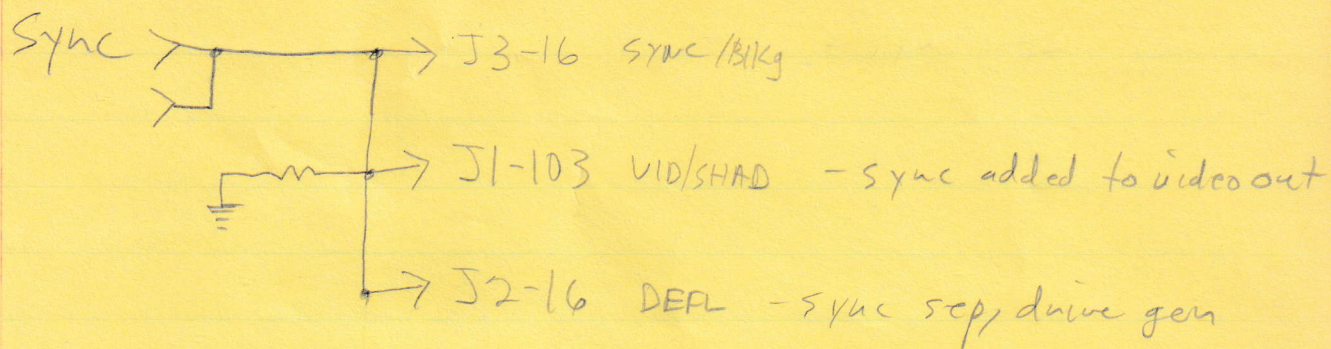 Sync J3-16 SYNC/Blkg
J1-103 VID/SHAD - sync added to video out
J2-16 DEFL - sync sep, drive gen